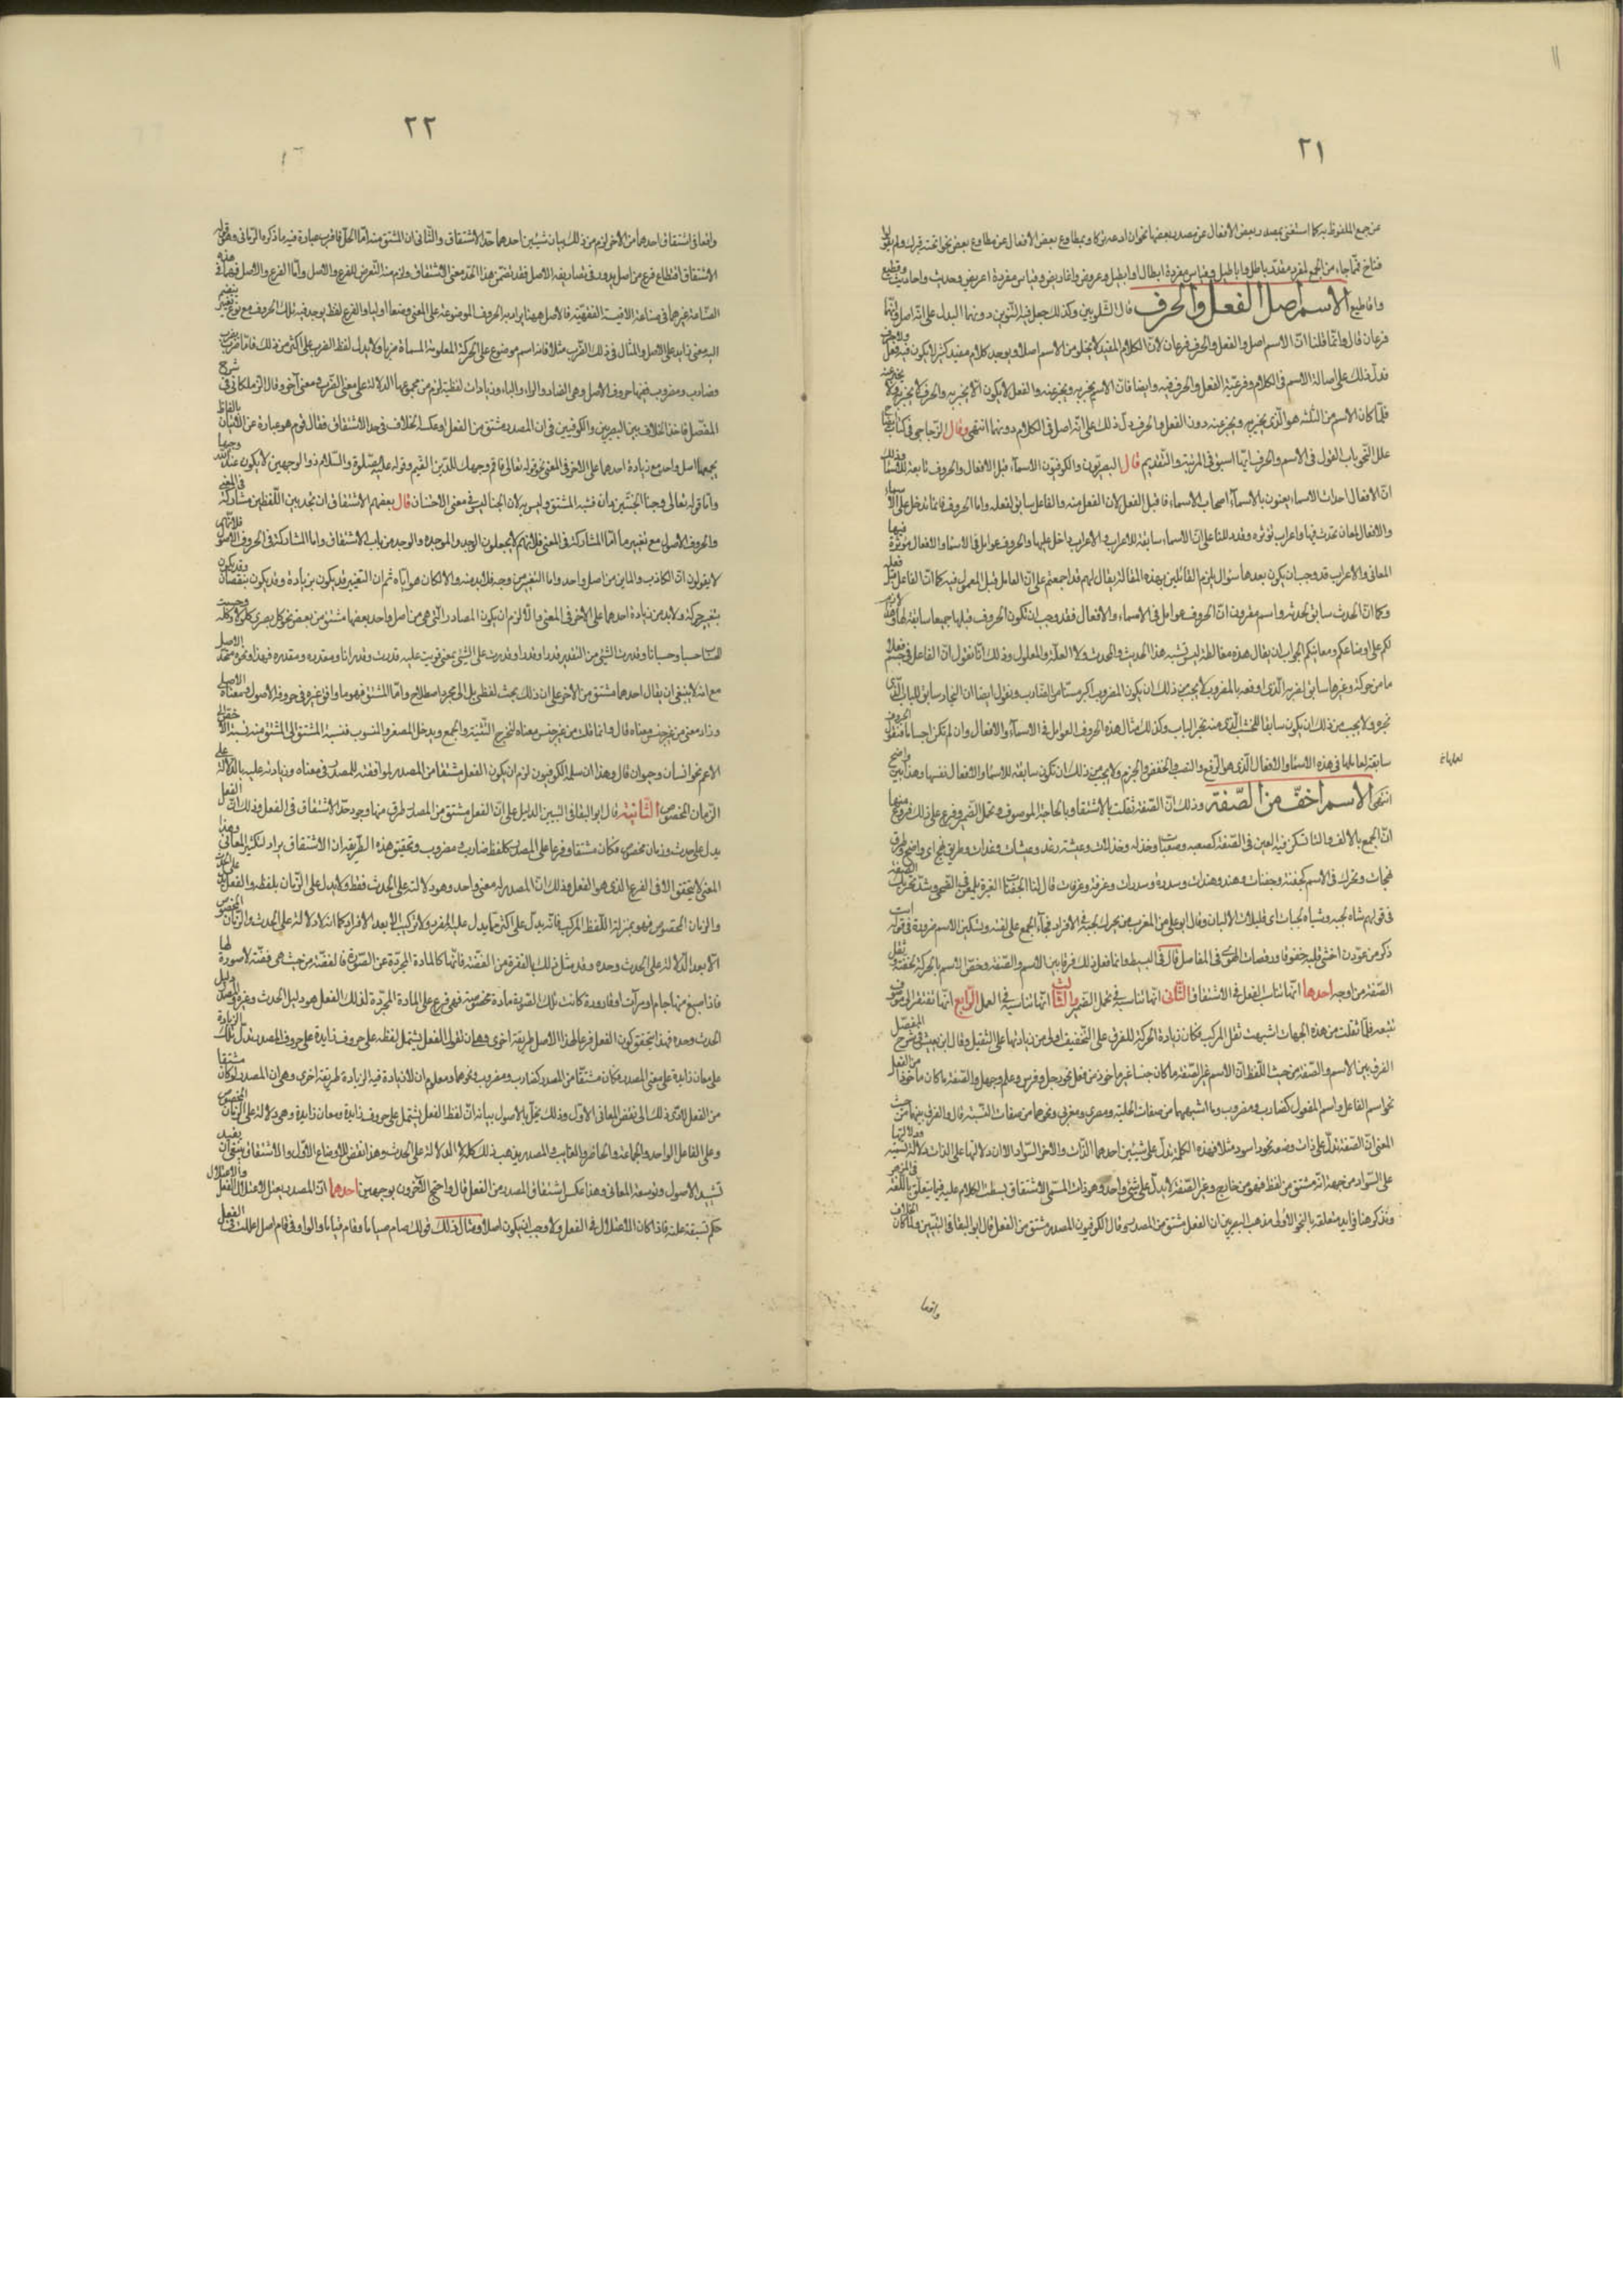 ٢١
عن جمع الملفوظ به كما استغنى بمصدر بعض الأفعال عن مصدر بعضها نحو ان ادعه تركا وبمطاوع بعض الأفعال عن مطاوع بعض نحو انخته فبرك ولم يقولوا
فناخ فمما جاء من الجمع لمفرد مقدر باطل واباطيل وقياس مفرده ابطال او ابطيل وعروض واعاريض وقياس مفرده اعريض وحديث واحاديث وقطيع
واقاطيع الاسم اصل الفعل والحرف قال الشلوبين وكذلك جعل فيه التنوين دونهما ليدل على انه اصل وانهما
فرعان قال وانما قلنا ان الاسم اصل والفعل والحرف فرعان لان الكلام المفيد لا يخلو من الاسم اصلا ويوجد كلام مفيد كثير لا يكون فيه فعل ولا حرف
فدل ذلك على اصالة الاسم في الكلام وفرعية الفعل والحرف فيه وايضا فان الاسم يخبر به ويخبر عنه والفعل لا يكون الا يخبر به والحرف لا يخبر به ولا يخبر عنه
فلما كان الاسم من الثلثة هو الذي يخبر به ويخبر عنه دون الفعل والحرف دل ذلك على انه اصل في الكلام دونهما انتهى وقال الزجاجي في كتاب
علل النحو باب القول في الاسم والحرف ايها اسبق في المرتبة والتقديم قال البصريون والكوفيون الاسماء قبل الافعال والحروف تابعة للاسماء وذلك
ان الافعال احداث الاسماء يعنون بالاسماء اصحاب الاسماء فاقبل الفعل لان الفعل منه والفاعل سابق لفعله واما الحروف فانما تدخل على الاسماء
والافعال لمعان تحدث فيها واعراب تؤثره وقد دللنا على ان الاسماء سابقة للاعراب والاعراب داخل عليها والحروف عوامل في الاسماء والافعال مؤثرة فيها
المعاني والاعراب قد وجب ان يكون بعدها سؤال يلزم القائلين بهذه المقالة يقال لهم قد اجمعتم على ان العامل قبل المعمول فيه كما ان الفاعل قبل فعله
وكما ان المحدث سابق لحدثه وانتم مقرون ان الحروف عوامل في الاسماء والافعال فقد وجب ان تكون الحروف قبلها جميعا سابقة لها وهذا لازم
لكم على اوضاعكم ومعانيكم الجواب ان يقال هذه مغالطة ليس تشبه هذا الحديث والمحدث ولا العلة والمعلول وذلك انا نقول ان الفاعل في جسم فعلا
ما من حركة وغيرها سابق لفعله الذي اوقعه بالمفعول لا يجب من ذلك ان يكون المضروب اكبر سنا من الضارب ونقول ايضا ان النجار سابق للباب الذي
نجره ولا يجب من ذلك ان يكون سابقا للخشب الذي منه نجر الباب وكذلك مثال هذه الحروف العوامل في الاسماء والافعال وان لم تكن اجساما فنقول الحروف
سابقة لعلها في هذه الاسماء والافعال الذي هو الرفع والنصب والخفض والجزم ولا يجب من ذلك ان تكون سابقة للاسماء والافعال نفسها وهذا بين واضح
لعملها ع
انتهى الاسم اخف من الصفة وذلك ان الصفة ثقلت بالاشتقاق وبالحاجة الى الموصوف وتحمل الضمير وفرع على ذلك فروع منها
ان الجمع بالالف والتا تسكن فيه العين في الصفة كصعبة وصعبات وخدلة وخدلات وعيشة رغد وعيشات رغدات وطريق فج اي واضح وطرق
فجات وتحرك في الاسم كجفنة وجفنات وهند وهندات وسدرة وسدرات وغرفة وغرفات قال لنا الجفنات الغر يلمعن في الضحى وشذ تحريك الصفة
في قولهم شاة لجبة وشياه لجبات اي قليلات الالبان وقال ابو علي من العرب من يحرك لجبة في الافراد فجاء الجمع على لغته وتسكين الاسم ضرورة في قوله
ذكر من عودن احشى قلبه خفوقا ورقصات الهوى في المفاصل قال في البسيط وانما فعل ذلك فرقا بين الاسم والصفة وخص الاسم بالحركة لخفته وثقل
الصفة من اوجه احدها انها تناسب الفعل في الاشتقاق الثاني انها تناسبه في تحمل الضمير والثالث انها تناسبه في العمل الرابع انها تفتقر الى موصوف
تتبعه فلما ثقلت من هذه الجهات اشبهت ثقل المركب فكان زيادة الحركة للفرق على التخفيف اولى من زيادتها على الثقيل وقال ابن يعيش في شرح المفصل
الفرق بين الاسم والصفة من حيث اللفظ ان الاسم غير الصفة ما كان جنسا غير ماخوذ من فعل نحو رجل وفرس وعلم وجهل والصفة ما كان ماخوذا من الفعل
نحو اسم الفاعل واسم المفعول كضارب ومضروب وما اشبههما من صفات الحلية ومصري ومغربي ونحوهما من صفات النسبة قال والفرق بينهما من حيث
المعنى ان الصفة تدل على ذات وصفه نحو اسود مثلا فهذه الكلمة تدل على شيئين احدهما الذات والاخر السواد الا ان دلالتها على الذات دلالة تسمية ودلالتها
على السواد من جهة انه مشتق من لفظه فهو من خارج وغير الصفة لا يدل الا على شيء واحد وهو ذات المسمى الاشتقاق بسطت الكلام عليه فيما يتعلق باللغة في المزهر
ونذكر هنا فوايد متعلقة بالنحو الاولى مذهب البصريين ان الفعل مشتق من المصدر وقال الكوفيون المصدر مشتق من الفعل قال ابو البقا في التبيين ولما كان الخلاف
واقعا
٢٢
واقعا في اشتقاق احدهما من الآخر لزم من ذلك بيان شيئين احدهما حد الاشتقاق والثاني ان المشتق منه اما الحد فاقرب عبارة فيه ما ذكره الرماني وهو قوله
الاشتقاق اقتطاع فرع من اصل يدور في تصاريفه الاصل فقد تضمن هذا الحد معنى الاشتقاق ولزم منه التعرض للفرع والاصل واما الفرع والاصل فهما في هذه
الصناعة غيرهما في صناعة الاقيسة الفقهية فالاصل ههنا يراد به الحروف الموضوعة على المعنى وضعا اوليا والفرع لفظ يوجد فيه تلك الحروف مع نوع تغيير ينضم
اليه معنى زايد على الاصل والمثال في ذلك الضرب مثلا فانه اسم موضوع على الحركة المعلومة المسماة ضربا ولا يدل لفظ الضرب على اكثر من ذلك فاما ضرب
وضارب ومضروب ففيها حروف الاصل وهي الضاد والراء والباء وزيادات لفظية لزم من مجموعها الدلالة على معنى الضرب ومعنى آخر وقال الزملكاني في شرح
المفصل فاخذ الخلاف بين البصريين والكوفيين في ان المصدر مشتق من الفعل او عكسه الخلاف في حد الاشتقاق فقال قوم هو عبارة عن الاتيان بالفاظ
يجمعها اصل واحد مع زيادة احدهما على الآخر في المعنى نحو قوله تعالى فاقم وجهك للدين القيم وقوله عليه الصلوة والسلام ذو الوجهين لا يكون عند الله وجيها
واما قوله تعالى وجنا الجنتين دان فشبه المشتق وليس به لان الجنا ليس في معنى الاجتنان قال بعضهم الاشتقاق ان تجد بين اللفظين مشاركة في المعنى
والحروف الاصول مع تغيير ما اما المشاركة في المعنى فلانهم لا يجعلون الوجد والموجدة والوجد من باب الاشتقاق واما المشاركة في الحروف الاصول فلانهم
لا يقولون ان الكاذب والماين من اصل واحد واما التغيير من وجه فلا بد منه والا لكان هو اياه ثم ان التغيير قد يكون بزيادة وقد يكون بنقصان وقد يكون
بتغيير حركة ولا بد من زيادة احدهما على الآخر في المعنى والا لزم ان يكون المصادر التي هي من اصل واحد بعضها مشتق من بعض نحو كل بصري كلولا وكلة وحسبت
الحساب حسبا وحسبانا وقدرت الشيء من التقدير قدرا وقدرا وقدرت على الشيء بمعنى قويت عليه قدرت وقدرانا ومقدرة ومقدرة فهذا ونحوه متحد الاصل
مع انه لا ينبغي ان يقال احدهما مشتق من الآخر على ان ذلك بحث لفظي يؤل الى مجرد اصطلاح واما المشتق فهو ما وافق غيره في حروفه الاصول ومعناه الاصلي
وزاد معنى من غير جنس معناه قال وانما قلت من غير جنس معناه لتخرج التثنية والجمع ويدخل المصغر والمنسوب فنسبة المشتق الى المشتق منه نسبة الاخص الى
الاعم نحو انسان وحيوان قال وهذا ان سلمه الكوفيون لزم ان يكون الفعل مشتقا من المصدر لموافقته للمصدر في معناه وزيادته عليه بالدلالة على
الزمان المخصوص الثانية قال ابو البقا في التبيين الدليل على ان الفعل مشتق من المصدر طرق منها وجود حد الاشتقاق في الفعل وذلك ان الفعل
يدل على حدث وزمان مخصوص فكان مشتقا وفرعا على المصدر كلفظ ضارب ومضروب وتحقيق هذه الطريقة ان الاشتقاق يراد لتكثير المعاني وهذا
المعنى لا يتحقق الا في الفرع الذي هو الفعل وذلك ان المصدر له معنى واحد وهو دلالته على الحدث فقط ولا يدل على الزمان بلفظه والفعل يدل على الحدث
والزمان المخصوص فهو بمنزلة اللفظ المركب فانه يدل على اكثر مما يدل عليه المفرد ولا تركيب الا بعد الافراد كما انه لا دلالة على الحدث والزمان المخصوص
الا بعد الدلالة على الحدث وحده وقد مثل ذلك بالنقرة من الفضة فانها كالمادة المجردة عن الصورة فالفضة من حيث هي فضة لا صورة لها
فاذا صيغ منها جام او مرآت او قارورة كانت تلك الصورة مادة مخصوصة فهي فرع على المادة المجردة كذلك الفعل هو دليل الحدث وغيره والمصدر دليل
الحدث وحده فبهذا يتحقق كون الفعل فرعا لهذا الاصل طريقة اخرى وهي ان تقول الفعل يشتمل لفظه على حروف زايدة على حروف المصدر تدل تلك الزيادة
على معان زايدة على معنى المصدر فكان مشتقا من المصدر كضارب ومضروب ونحوهما ومعلوم ان ما لا زيادة فيه اصل لما فيه الزيادة طريقة اخرى وهي ان المصدر لو كان مشتقا
من الفعل لادى ذلك الى نقض المعاني الاول وذلك يخل بالاصول بيانه ان لفظ الفعل يشتمل على حروف زايدة ومعان زايدة وهي دلالة على الزمان المخصوص
وعلى الفاعل الواحد والجماعة والحاضر والغايب والمصدر يذهب ذلك كله الا الدلالة على الحدث وهذا نقض للاوضاع الاول والاشتقاق ينبغي ان يفيد
تشييد الاصول وتوسعة المعاني وهذا عكس اشتقاق المصدر من الفعل قال واحتج الآخرون بوجهين احدهما ان المصدر يعتل لاعتلال الفعل والاعتلال
حكم تسبقه علته فاذا كان الاعتلال في الفعل ولا وجب ان يكون اصلا ومثال ذلك قولك صام صياما وقام قياما والواو في قام اصل اعلت في الفعل